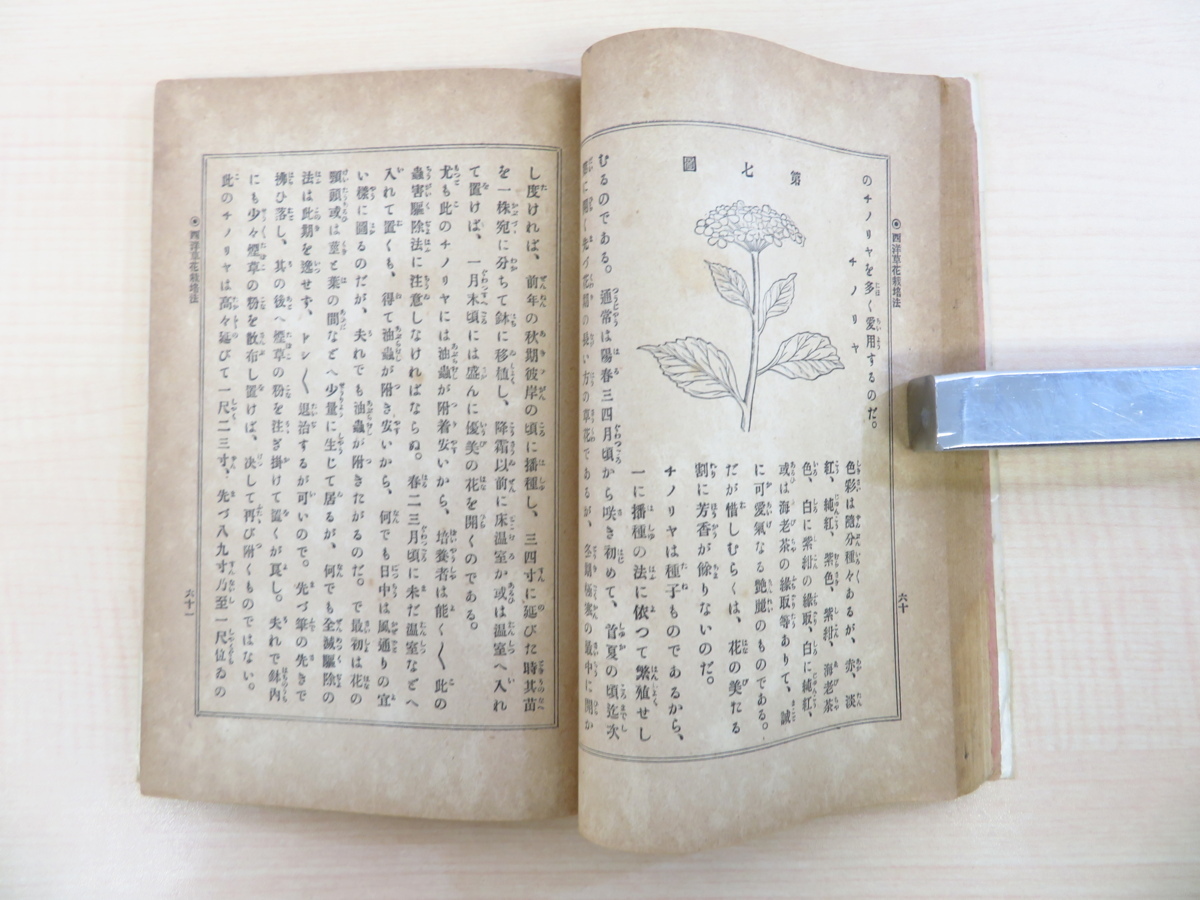 ◉西洋草花栽培法
六十
のチノリヤを多く愛用するのだ。
チノリヤ
第七圖
色彩は隨分種々あるが、赤、淡
紅、純紅、紫色、紫紺、海老茶
色、白に紫紺の緣取、白に純紅、
或は海老茶の緣取等ありて、誠
に可愛氣なる艷麗のものである。
だが惜しむらくは、花の美たる
割に芳香が餘りないのだ。
チノリヤは種子ものであるから、
一に播種の法に依つて繁殖せし
むるのである。通常は陽春三四月頃から咲き初めて、首夏の頃迄次
に開く先づ花期の長い方の草花であるが、冬期極寒の最中に開か
し度ければ、前年の秋期彼岸の頃に播種し、三四寸に延びた時其苗
を一株宛に分ちて鉢に移植し、降霜以前に床温室か或は温室へ入れ
て置けば、一月末頃には盛んに優美の花を開くのである。
尤も此のチノリヤには油蟲が附着安いから、培養者は能く〱此の
蟲害驅除法に注意しなければならぬ。春二三月頃に未だ温室などへ
入れて置くも、得て油蟲が附き安いから、何でも日中は風通りの宜
い樣に圖るのだが、夫れでも油蟲が附きたがるのだ。で最初は花の
頸頭或は莖と葉の間などへ少量に生じて居るが、何でも全滅驅除の
法は此期を逸せず、ドシ〱退治するが可いので。先づ筆の先きで
拂ひ落し、其の後へ煙草の粉を注ぎ掛けて置くが良し。夫れで鉢内
にも少々煙草の粉を散布し置けば、決して再び附くものではない。
此のチノリヤは高々延びて一尺二三寸、先づ八九寸乃至一尺位ゐの
◉西洋草花栽培法
六十一